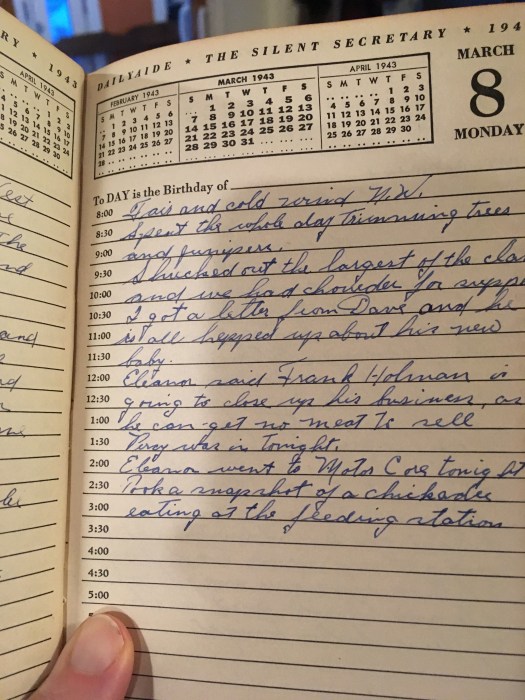 RY ★ 1943
APRIL 1943
S M T W T F S
DAILYAIDE ★ THE SILENT SECRETARY ★ 194
FEBRUARY 1943
S M T W T F S
.. 1 2 3 4 5 6
7 8 9 10 11 12 13
14 15 16 17 18 19 20
21 22 23 24 25 26 27
28 .. .. .. .. .. ..
MARCH 1943
S M T W T F S
.. 1 2 3 4 5 6
7 8 9 10 11 12 13
14 15 16 17 18 19 20
21 22 23 24 25 26 27
28 29 30 31 .. .. ..
APRIL 1943
S M T W T F S
.. .. .. .. 1 2 3
4 5 6 7 8 9 10
11 12 13 14 15 16 17
18 19 20 21 22 23 24
25 26 27 28 29 30 ..
MARCH
8
MONDAY
To DAY is the Birthday of
8:00 Fair and cold wind N.W.
8:30 Spent the whole day Trimming trees
9:00 and junipers.
9:30 Shucked out the largest of the cla
10:00 and we had chowder for supp
10:30 I got a letter from Dave and he
11:00 is all hepped up about his new
11:30 baby.
12:00 Eleanor said Frank Holman is
12:30 going to close up his business, as
1:00 he can get no meat To sell
1:30 Percy was in Tonight.
2:00 Eleanor went to Motor Corp tonight
2:30 Took a snapshot of a chickadee
3:00 eating at the feeding station
3:30
4:00
4:30
5:00